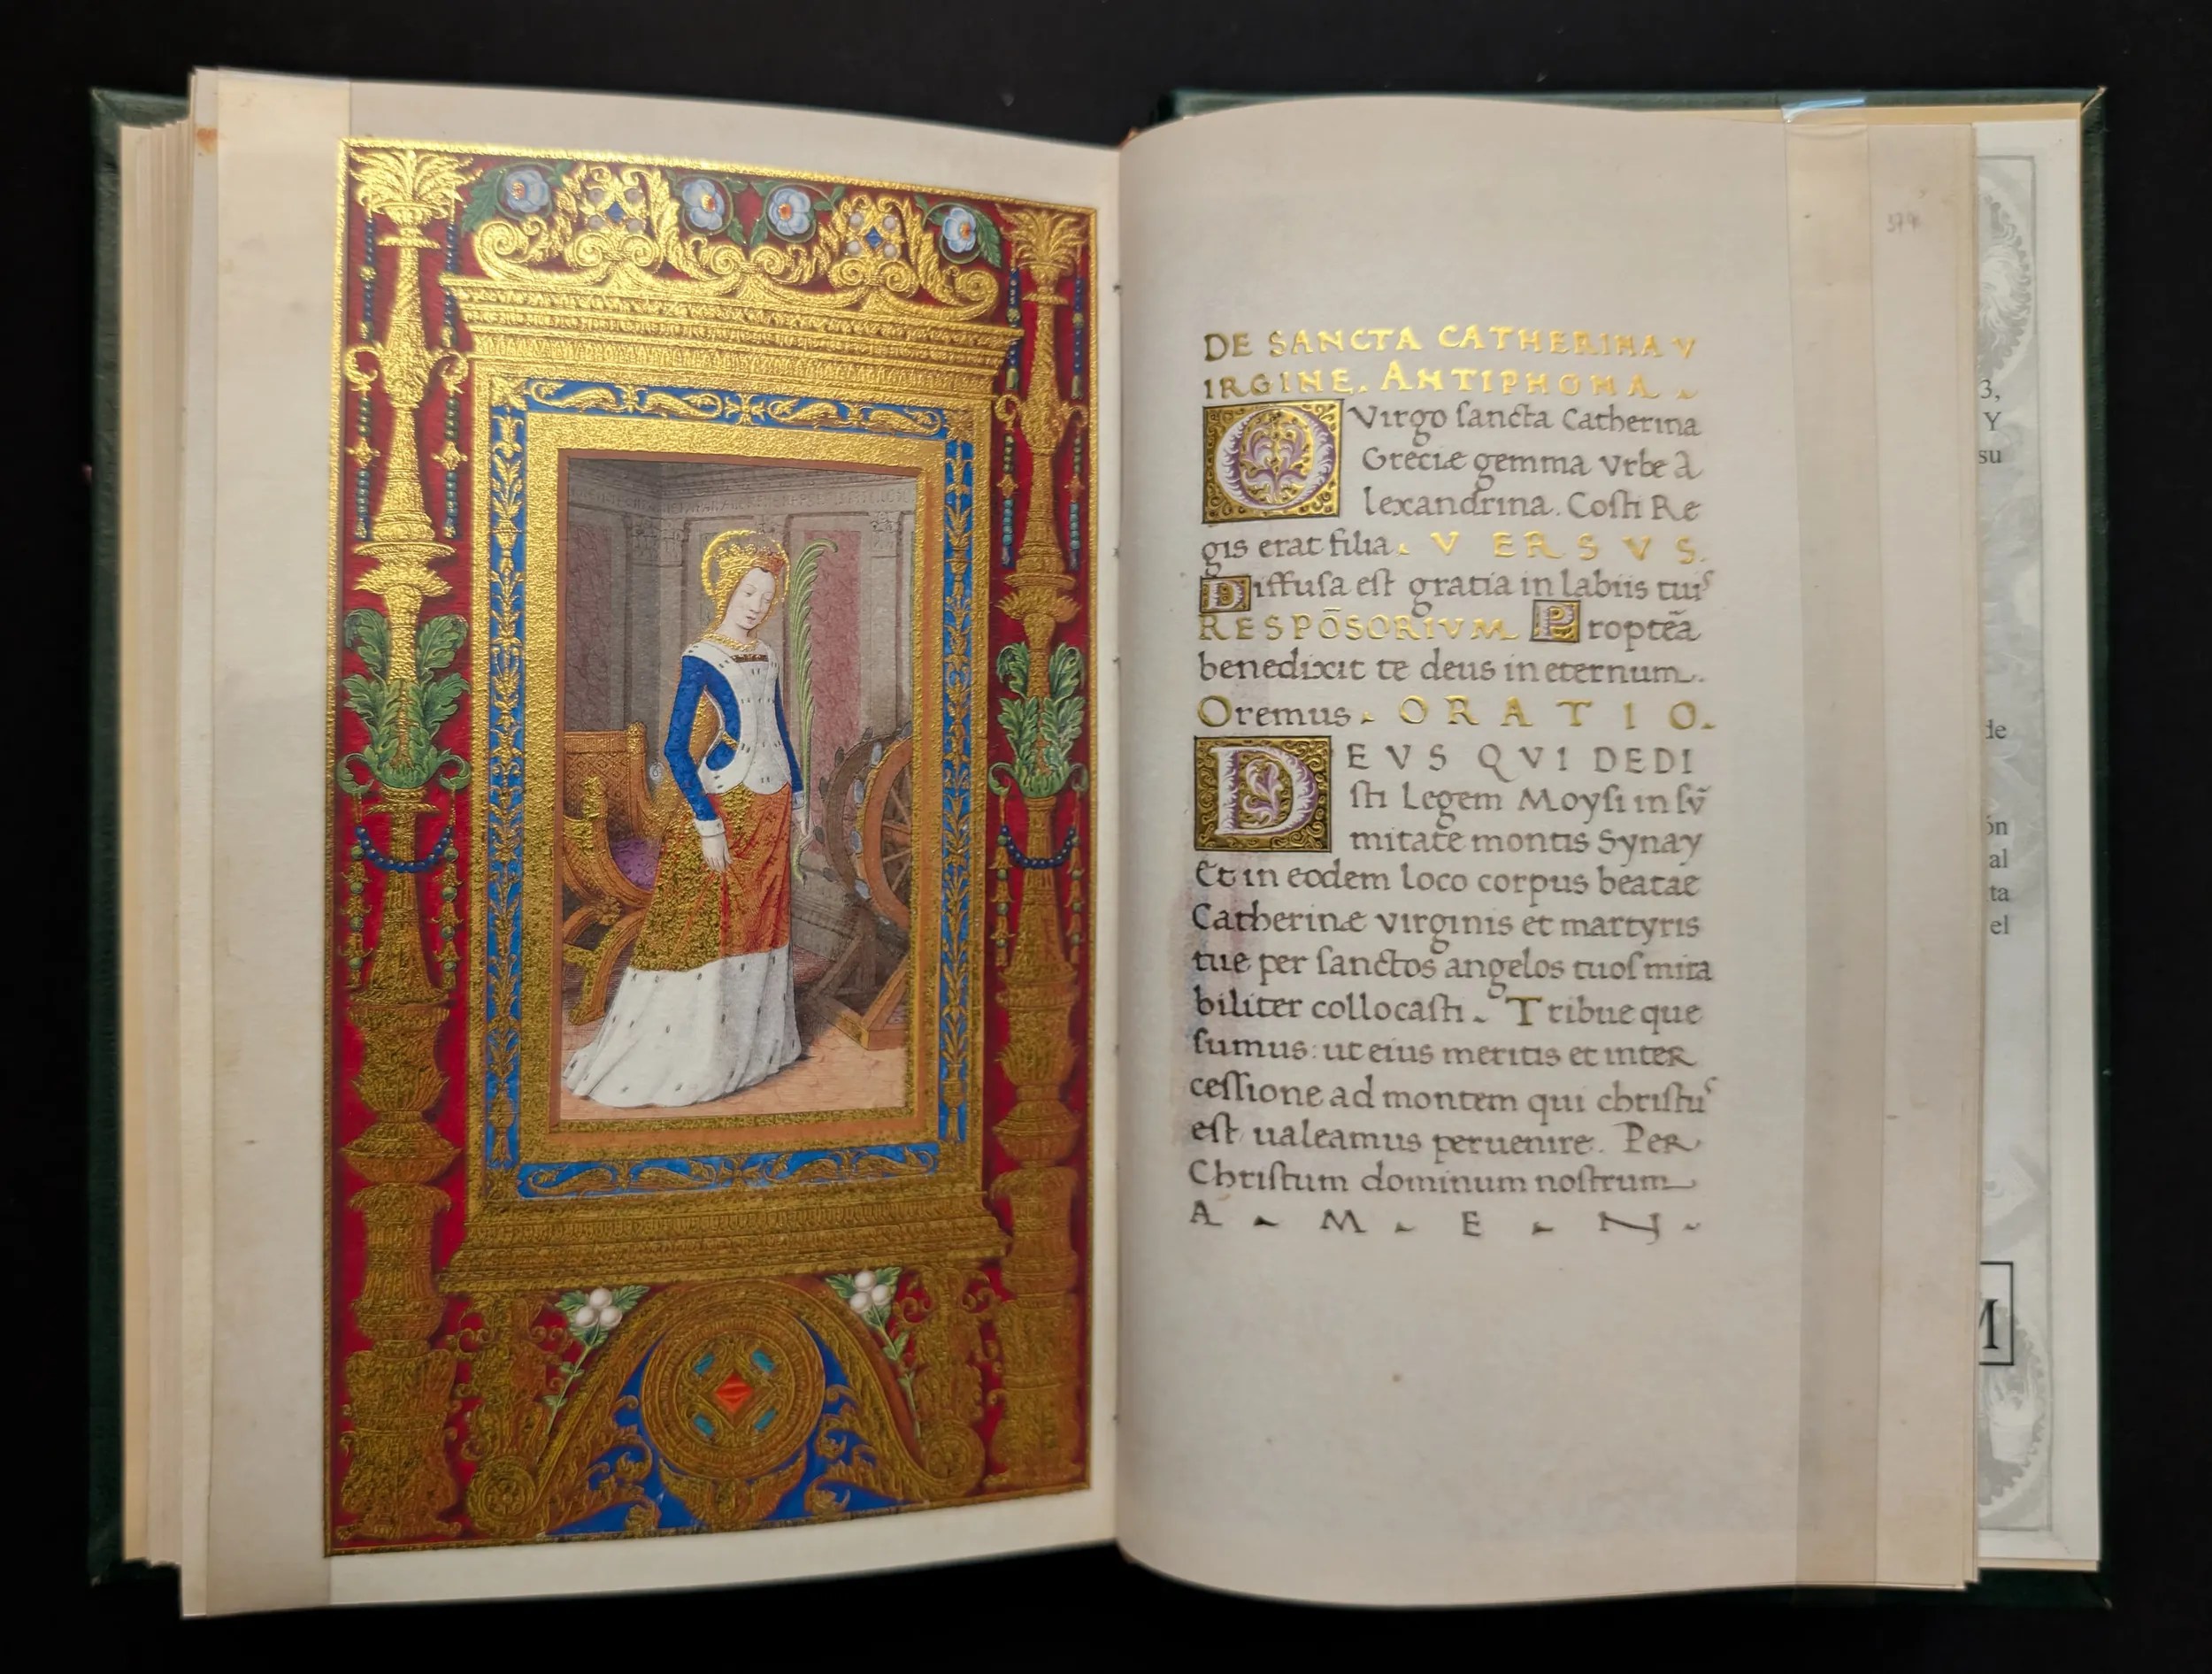 DE SANCTA CATHERINA V
IRGINE. ANTIPHONA
O Virgo sancta Catherina
Greciæ gemma Vrbe A
lexandrina. Costi Re
gis erat filia. VERSVS.
Diffusa est gratia in labiis tuis
RESPŌSORIVM Propteā
benedixit te deus in eternum.
Oremus. ORATIO.
DEVS QVI DEDI
sti Legem Moysi in sv̄
mitate montis Synay
Et in eodem loco corpus beatae
Catherinæ virginis et martyris
tue per sanctos angelos tuos mira
biliter collocasti. Tribue que
sumus: ut eius meritis et inter
cessione ad montem qui christus
est ualeamus peruenire. Per
Christum dominum nostrum
A M E N
3,
Y
su
de
ón
al
ta
el
M